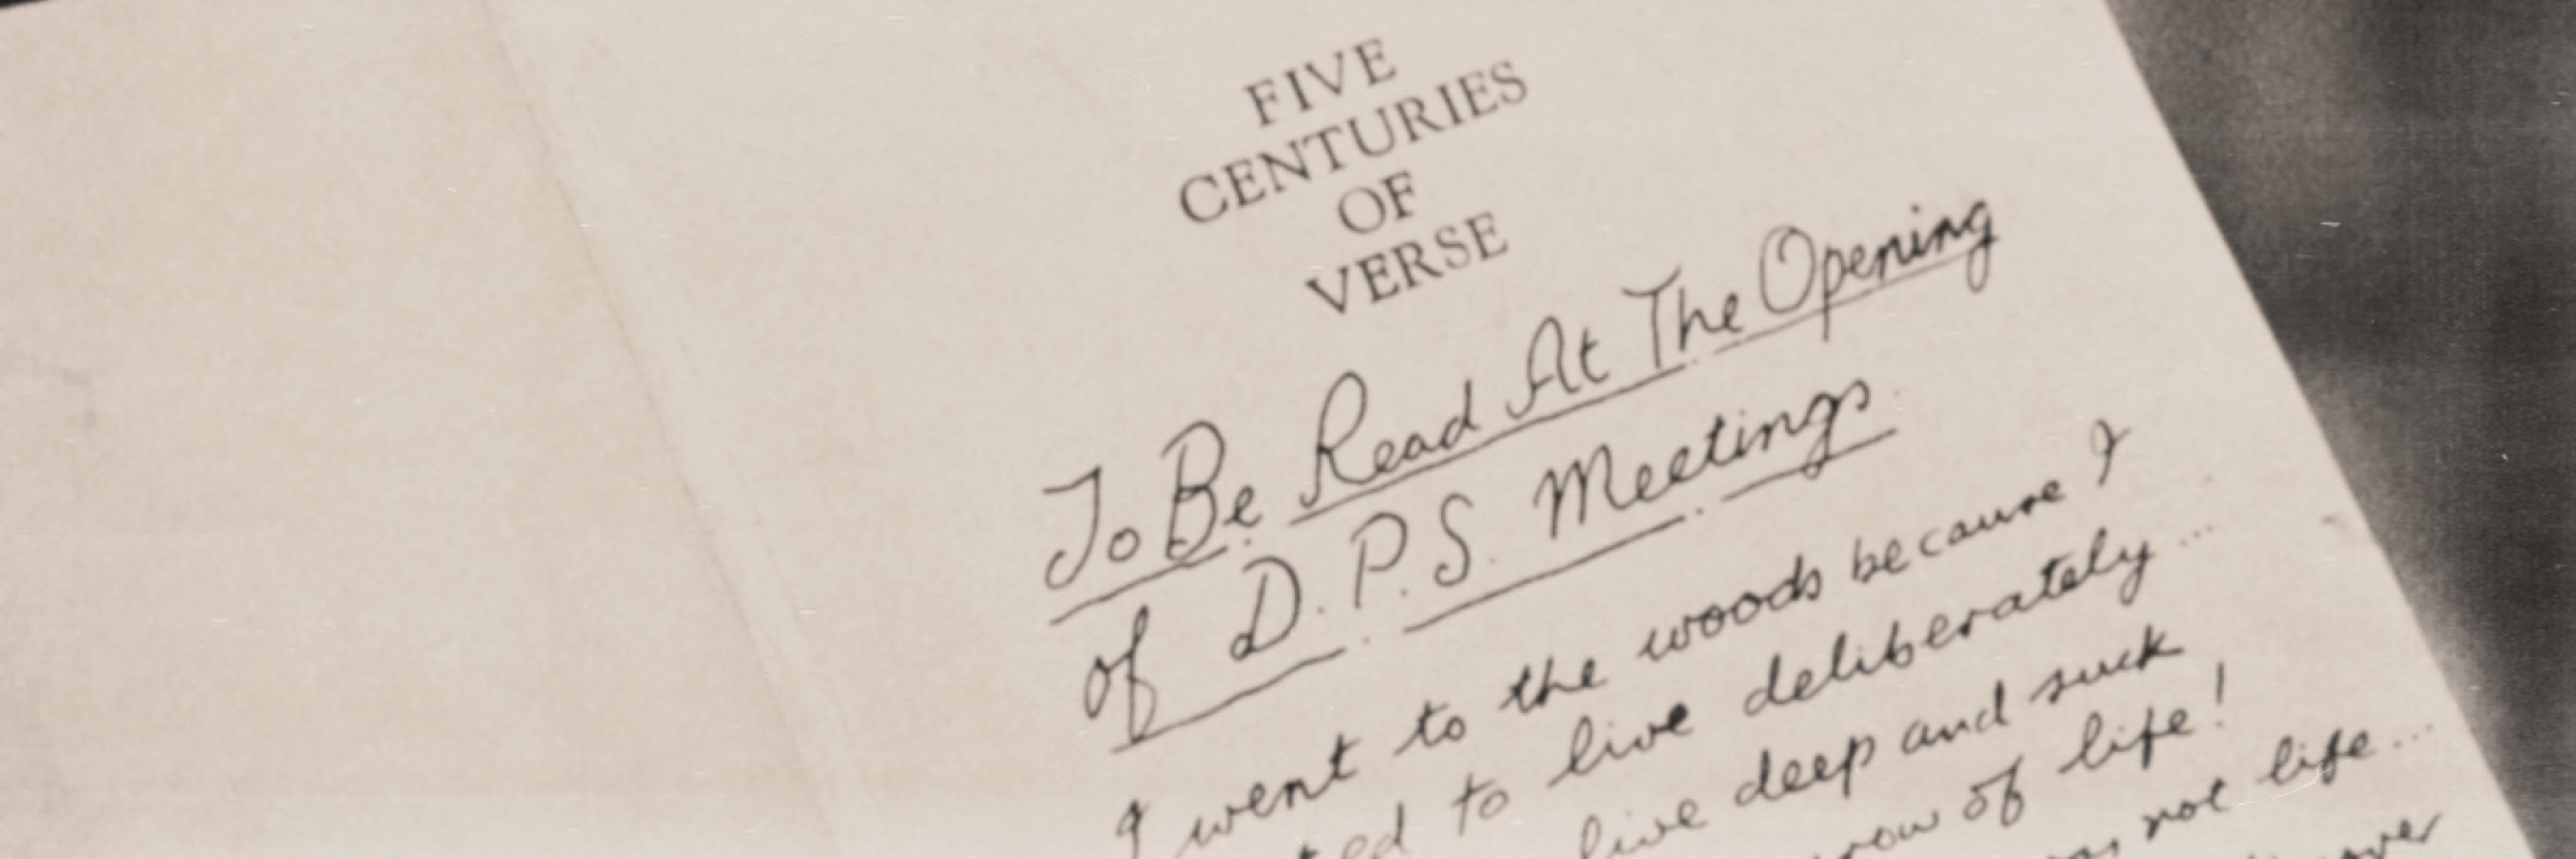 FIVE
CENTURIES
OF
VERSE
To Be Read At The Opening
of D.P.S. Meetings
I went to the woods because I
to live deliberately...
live deep and suck
of life!
not life...